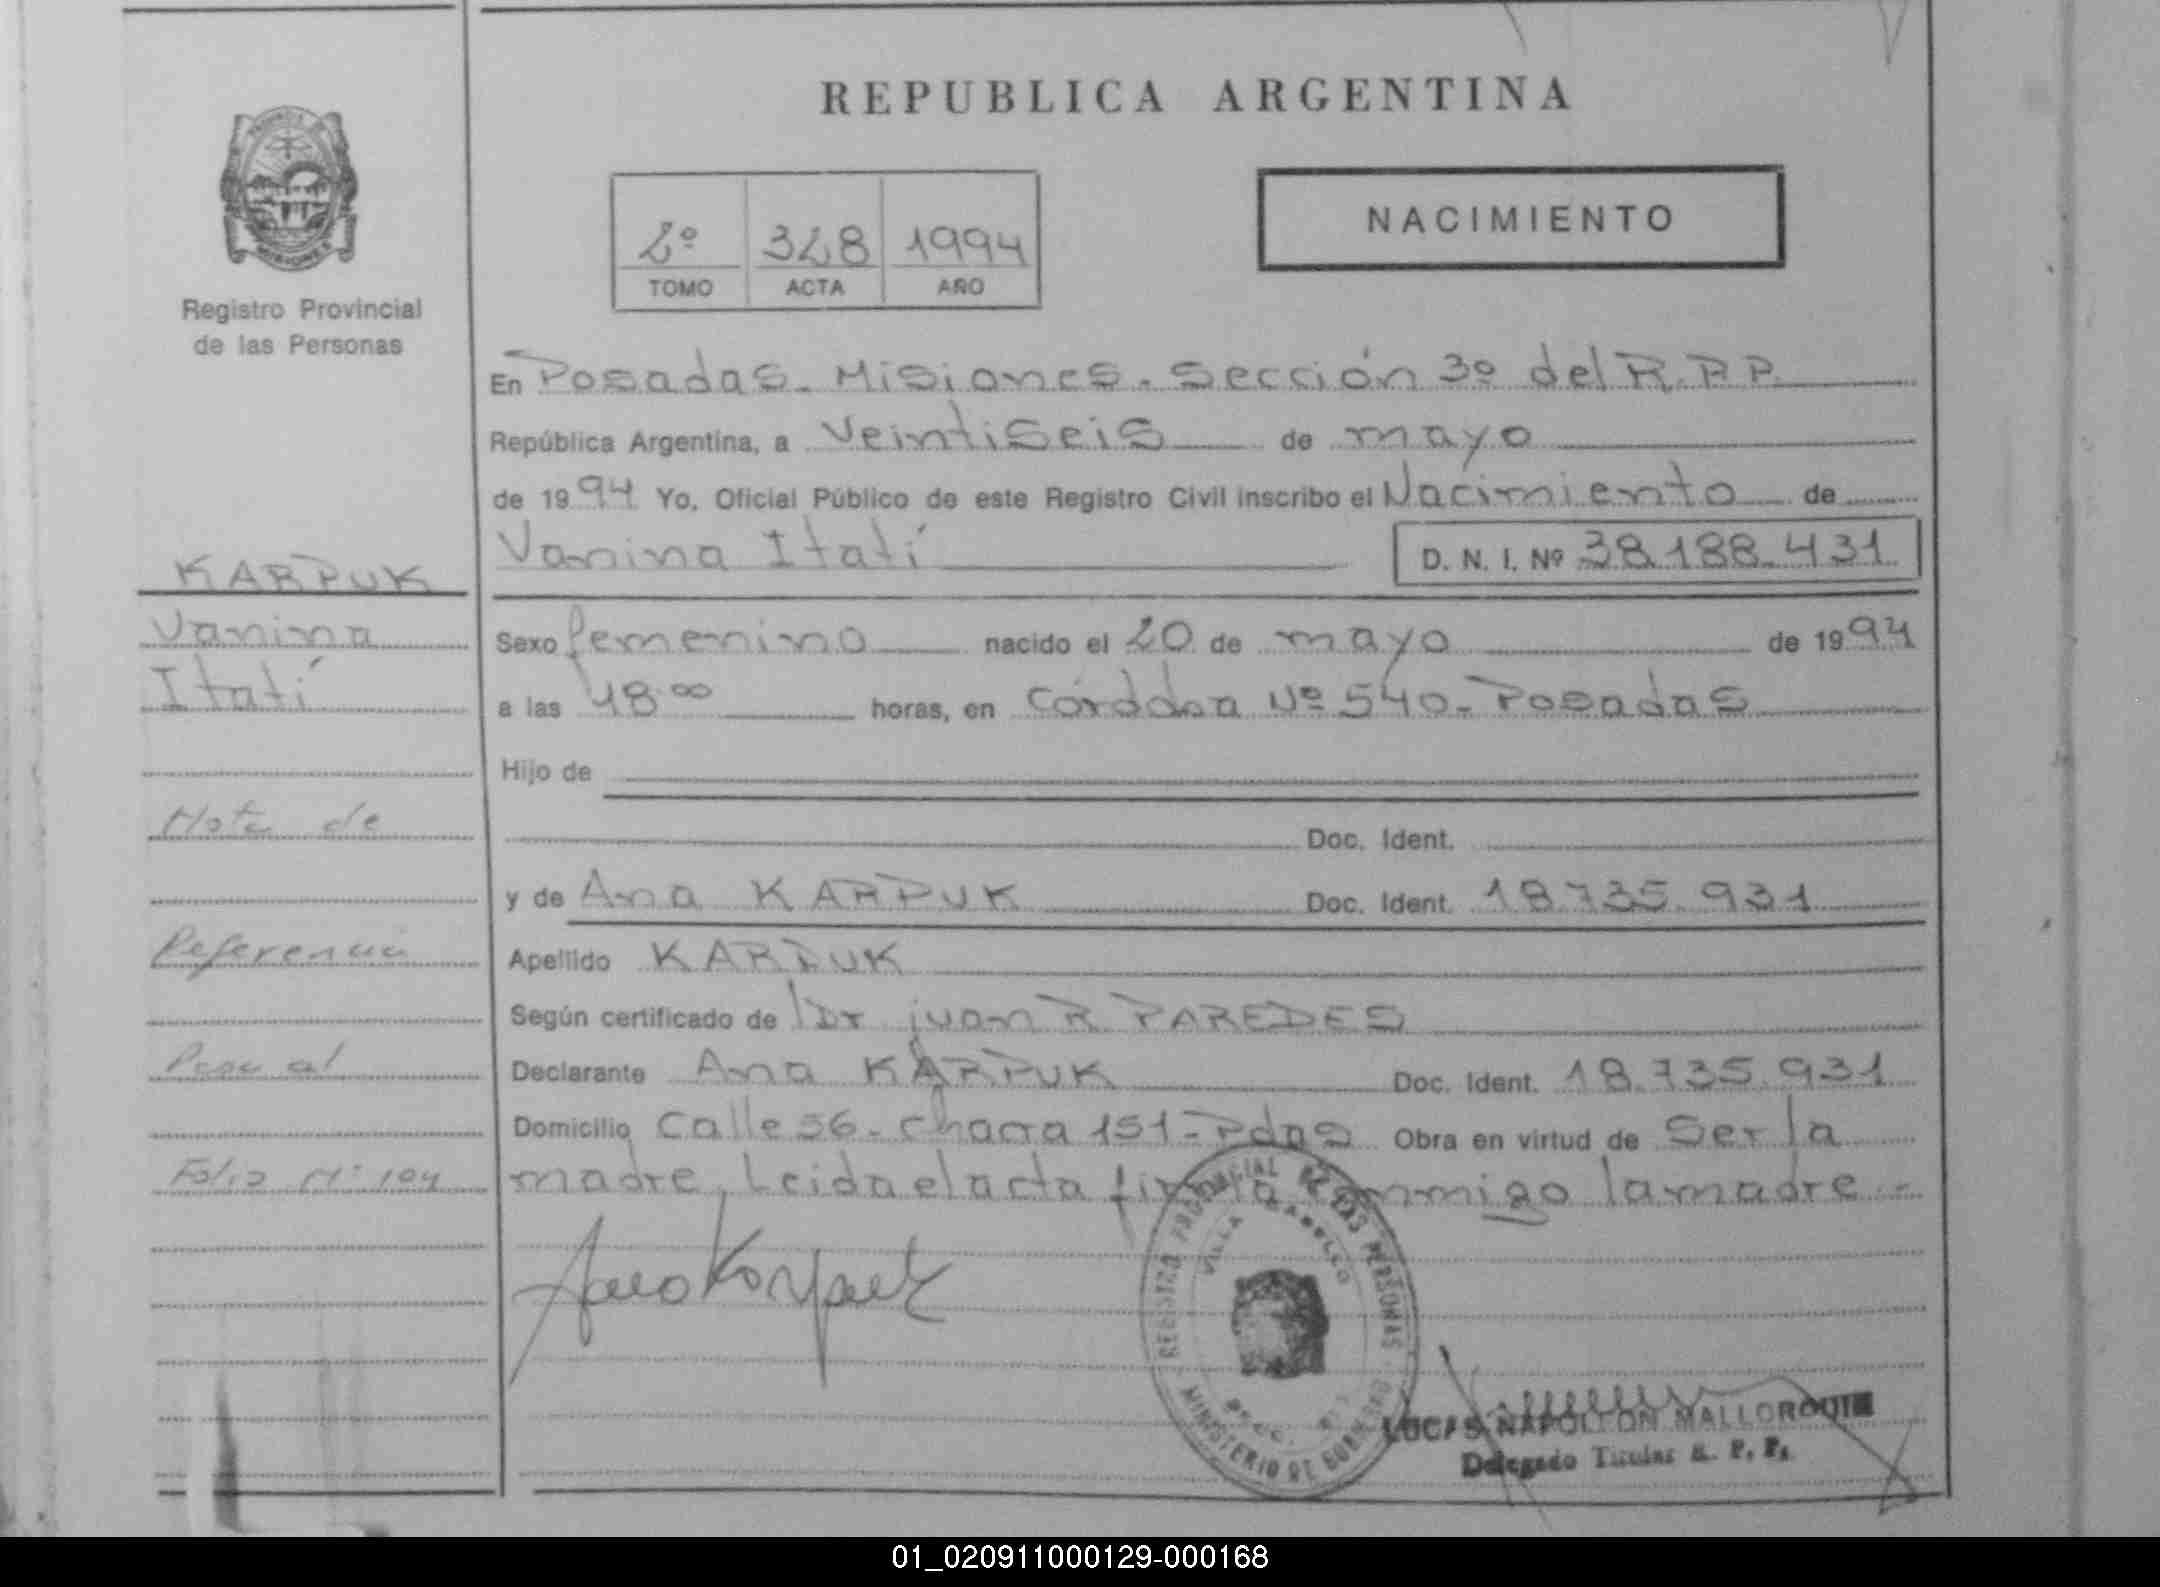 REPUBLICA ARGENTINA
2º 328 1994
TOMO ACTA AÑO
NACIMIENTO
Registro Provincial
de las Personas
En Posadas - Misiones - Sección 3º del R.P.P.
República Argentina, a Veintiseis de mayo
de 1994 Yo, Oficial Público de este Registro Civil inscribo el Nacimiento de
Vanina Itatí D. N. I. Nº 38.188.431
KARPUK
Vanina
Itatí
Sexo femenino nacido el 20 de mayo de 1994
a las 18ºº horas, en Córdoba Nº 540 - Posadas
Hijo de
Doc. Ident.
y de Ana KARPUK Doc. Ident. 18.735.931
Apellido KARPUK
Según certificado de Dr juan R PAREDES
Declarante Ana KARPUK Doc. Ident. 18.735.931
Domicilio Calle 56 - chacra 151 - Pdas Obra en virtud de Ser la
madre, Leida el acta firma conmigo la madre -
Nota de
Referencia
Pasa al
Folio Nº 104
Ana Karpuk
REGISTRO PROVINCIAL DE LAS PERSONAS
VILLA CABELLO
MINISTERIO DE GOBIERNO
LUCAS NAPOLEON MALLORQUIN
Delegado Titular R. P. P.
01_020911000129-000168